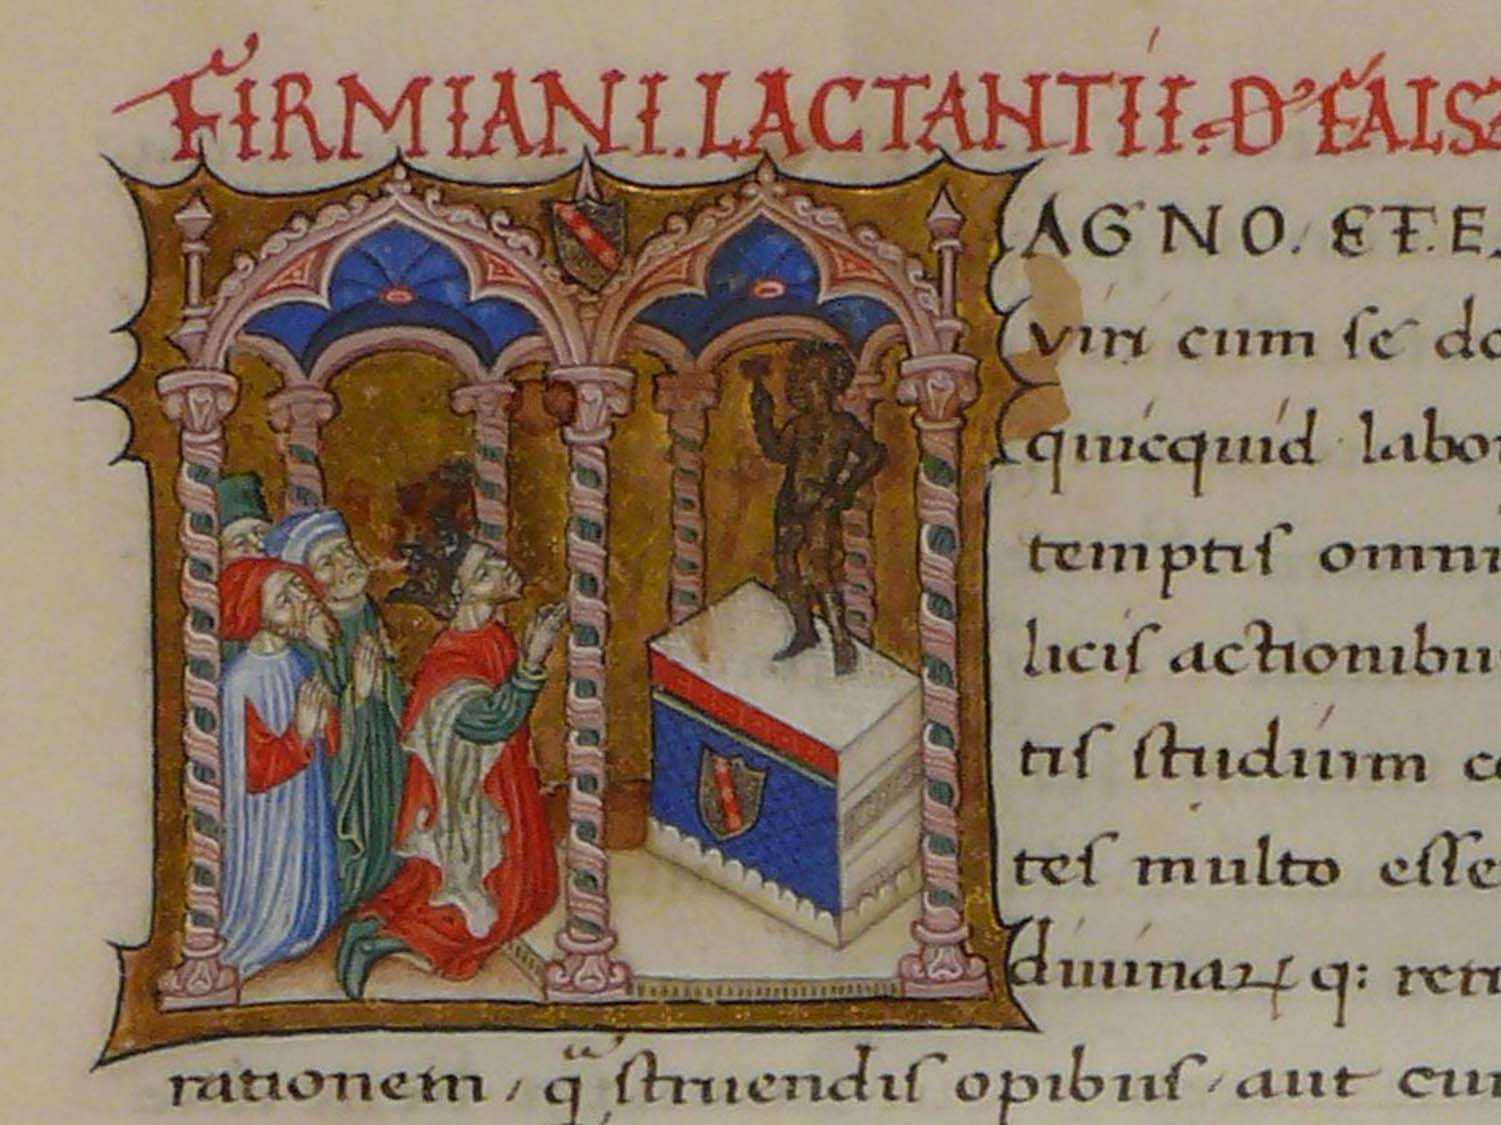 FIRMIANI. LACTANTII. D' FALSA
AGNO. ET. E
viri cum se do
quicquid labor
temptis omni
licis actionibu
tis studium co
tes multo esse
diuinaꝝ q: reru
rationem, qͣ struendis opibus, aut cu